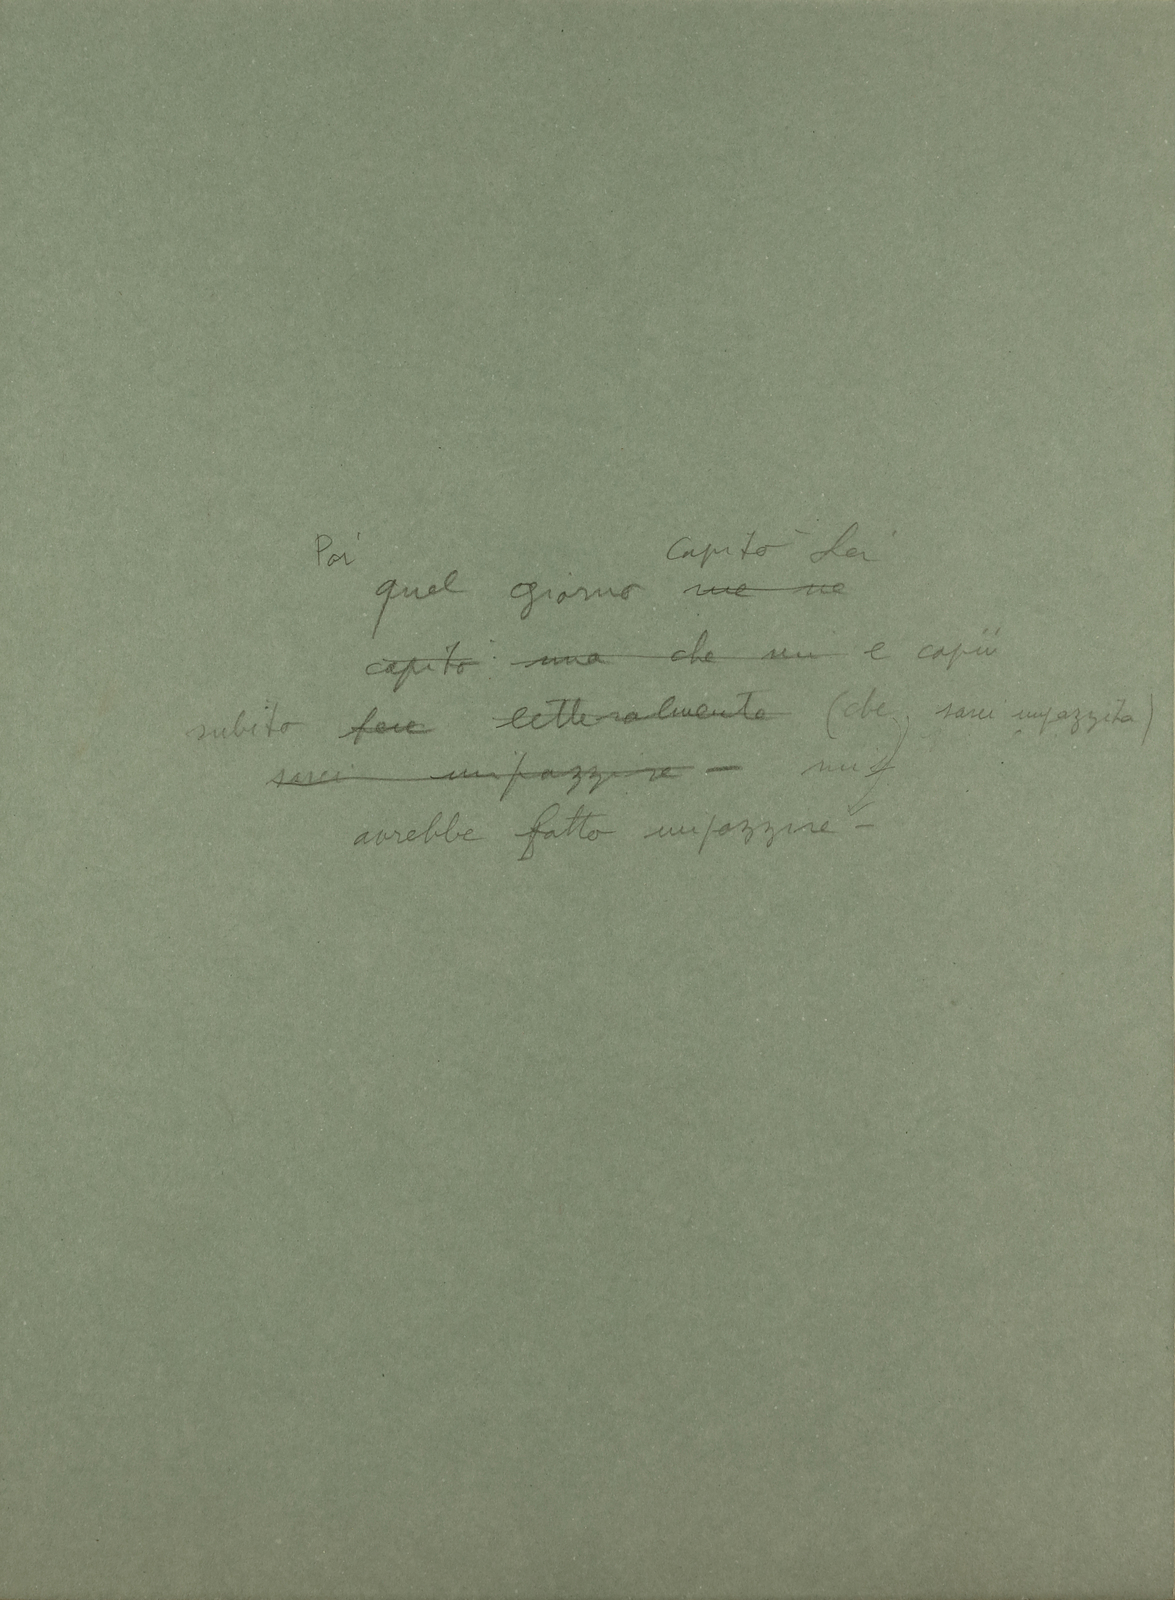 Poi capitò Lei
quel giorno me ne
capitò una che mi e capii
subito fece letteralmente (che sarei impazzita)
sarei impazzire - mi
avrebbe fatto impazzire -